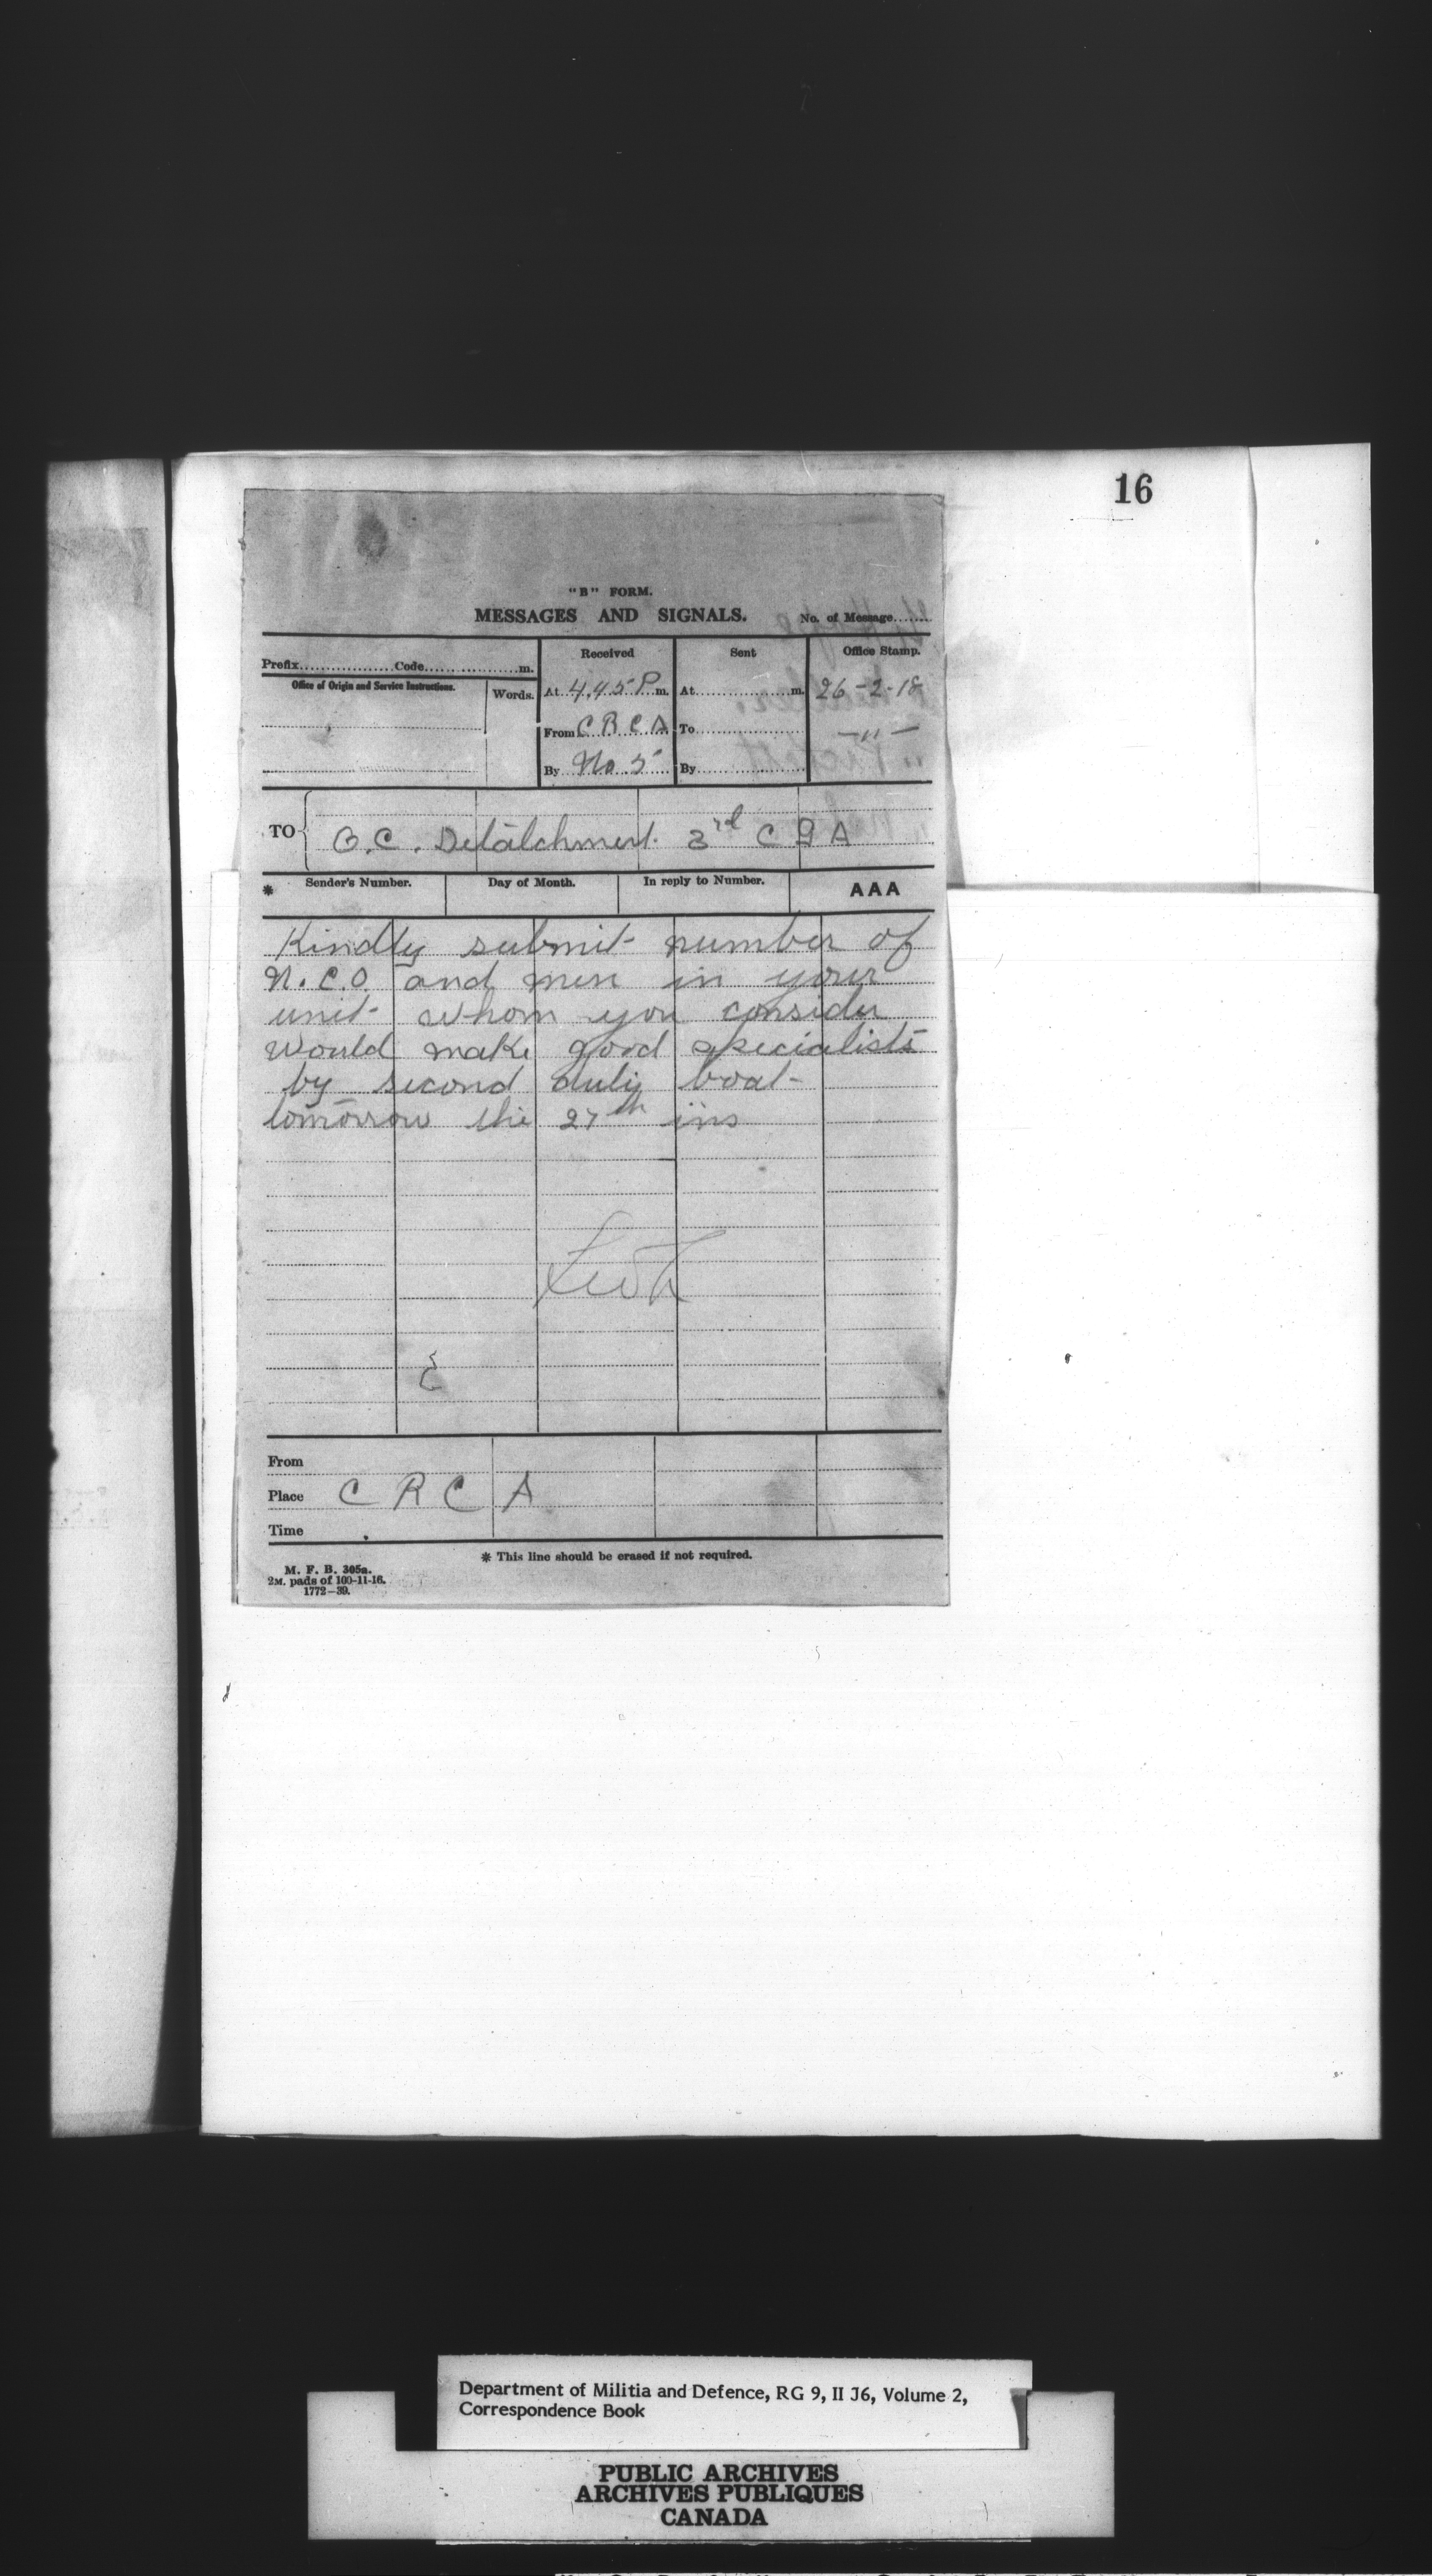 16
"B" FORM.
MESSAGES AND SIGNALS. No. of Message.......
Prefix..................Code..................m.
Office of Origin and Service Instructions.
Words.
Received
At 4.45 P m.
From C R C A
By No. 5
Sent
At..................m.
To..................
By..................
Office Stamp.
26-2-18
—"—
TO O.C. Detatchment. 3rd C G A
* Sender's Number. Day of Month. In reply to Number. AAA
Kindly submit number of
N.C.O. and men in your
unit whom you consider
would make good specialists
by second duty boat
tomorrow the 27th ins
From
Place C R C A
Time
* This line should be erased if not required.
M. F. B. 305a.
2M. pads of 100-11-16.
1772-39.
Department of Militia and Defence, RG 9, II J6, Volume 2,
Correspondence Book
PUBLIC ARCHIVES
ARCHIVES PUBLIQUES
CANADA